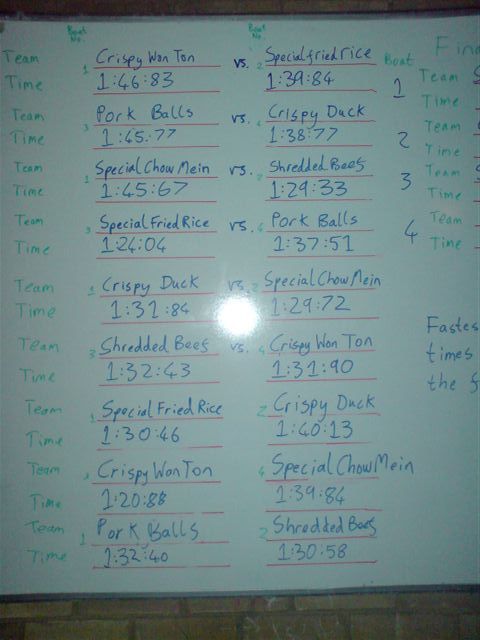 Boat No. Boat No.
Team 1 Crispy Won Ton vs. 2 Special fried rice
Time 1:46:83 1:39:84
Team 3 Pork Balls vs. 4 Crispy Duck
Time 1:45:77 1:38:77
Team 1 Special Chow Mein vs. 2 Shredded Beef
Time 1:45:67 1:29:33
Team 3 Special Fried Rice vs. 4 Pork Balls
Time 1:24:04 1:37:51
Team 1 Crispy Duck vs. 2 Special Chow Mein
Time 1:31:84 1:29:72
Team 3 Shredded Beef vs. 4 Crispy Won Ton
Time 1:32:43 1:31:90
Team 1 Special Fried Rice 2 Crispy Duck
Time 1:30:46 1:40:13
Team 3 Crispy Won Ton 4 Special Chow Mein
Time 1:20:88 1:39:84
Team 1 Pork Balls 2 Shredded Beef
Time 1:32:40 1:30:58
Boat
1 Team
Time
2 Team
Time
3 Team
Time
4 Team
Time
times
the